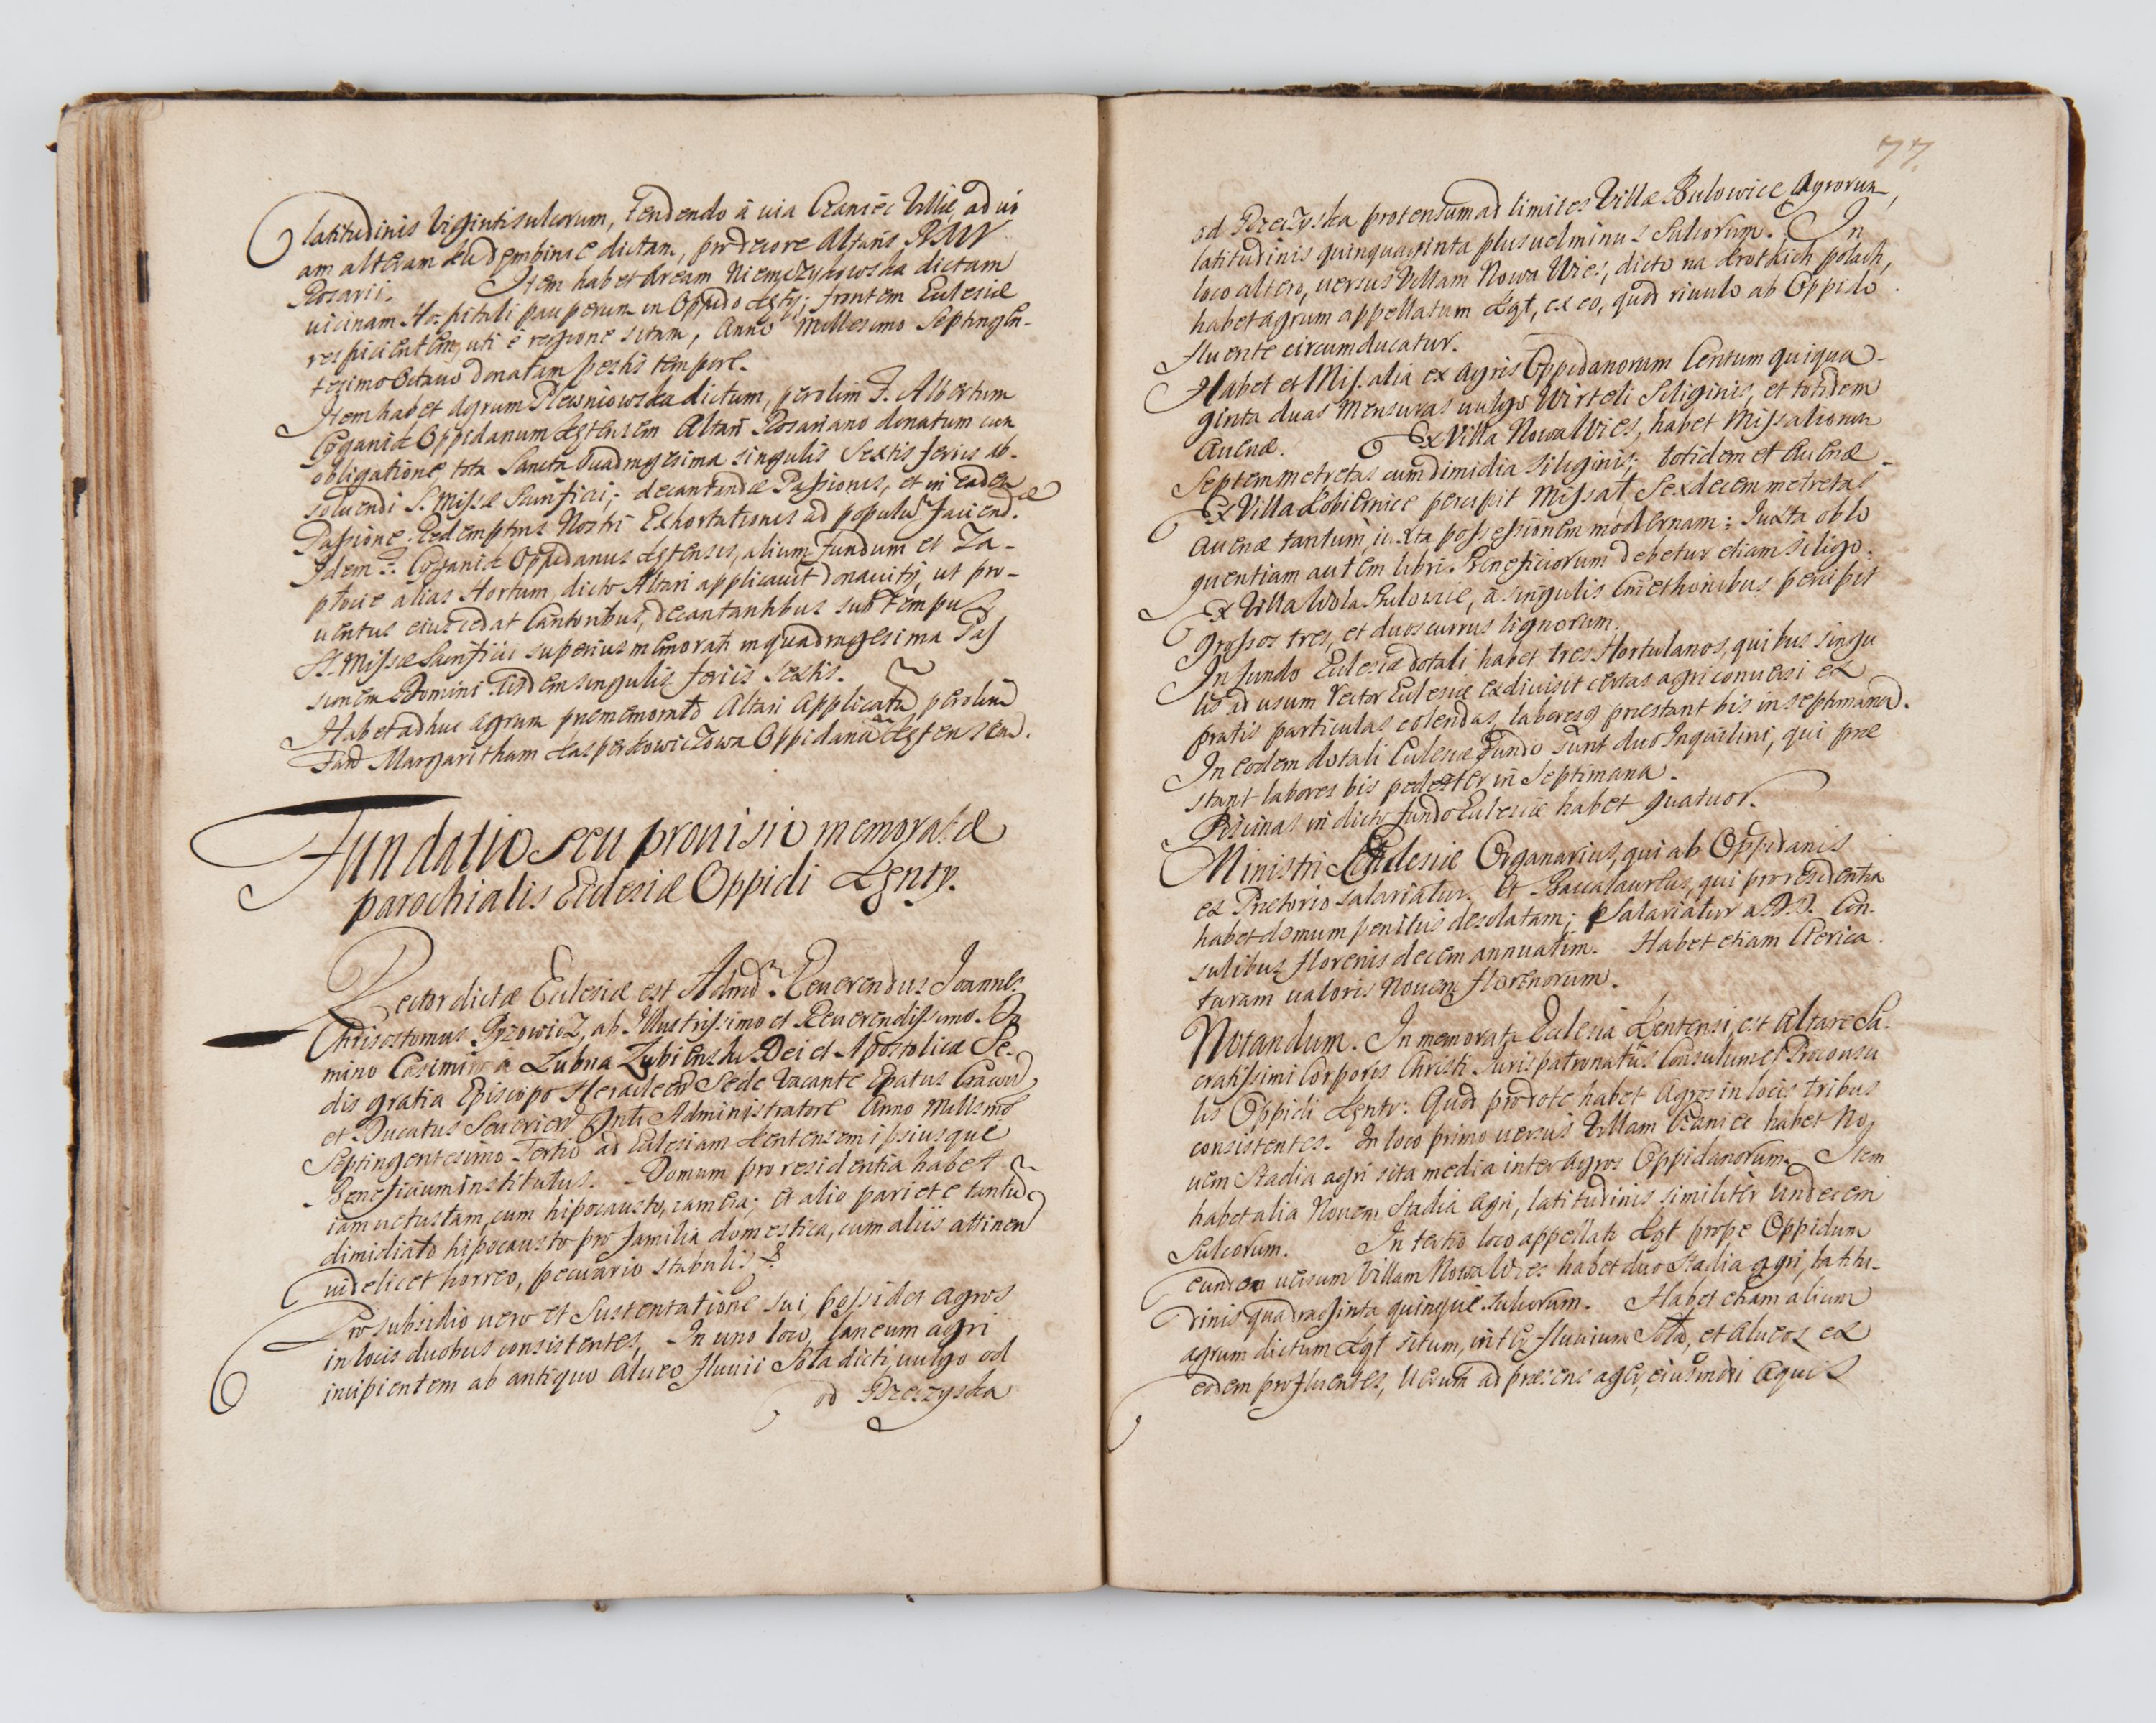 latitudinis Viginti sulcorum, tendendo à uia Czaniec Ville, ad ui
am alteram ku dembinie dictam, pro decore Altaris BMV
Rosarii. Item habet Aream Niemczykowska dictam
uicinam Hospitali pauperum in Oppido frontem Eclesiæ
respicientem, uti è regione sitam, Anno Millesimo Septingen-
tesimo Octauo donatam pestis tempore.
Item habet Agrum Plewniowska dictum, per olim F. Albertum
Cyganik Oppidanum Altari Rosariano donatum cum
obligatione tota Sancta Quadragesima singulis Sextis ferijs ab-
soluendi S. Missæ Sacrificij; decantandæ Passionis, et in eadem
Passione Redemptoris Nostri Exhortationis ad populu faciend.
Idem F. Cyganik Oppidanus alium fundum et Za-
plocie alias Hortum, dicto Altari applicauit donauitq, ut pro-
uentus eius cedat Cantoribus, decantantibus sub tempus
S. Missæ Sacrificij superius memorati in quadragesima Pas
sionem Domini itidem singulis ferijs sextis.
Habet adhuc agrum prememorato Altari Applicatu, per olim
Fam Margaritham Kasperkowiczowa Oppidana
Fundatio seu prouisio memoratæ
parochialis Eclesiæ Oppidi Kenty.
Rector dictæ Eclesiæ est Admd. Reuerendus Joannes
Chrisostomus ab Illustrissimo et Reuerendissimo Do
mino Casimiro à Lubna Lubienski Dei et Apostolicæ Se-
dis gratia Episcopo Heracleen Sede Vacante Epatus Cracou
et Ducatus Seuerien Gnli Administratore Anno Millsmo
Septingentesimo Tertio ad Eclesiam Kentensem ipsiusque
Beneficium institutus. Domum pro residentia habet
iam uetustam, cum hipocausto, camera; et alio pariete tantu
dimidiato hipocausto pro familia domestica, cum aliis attinen
uidelicet horreo, pecuario stabulis &
Pro subsidio uero et Sustentatione sui possidet agros
in locis duobus consistentes, In uno loco, laneum agri
incipientem ab antiquo Alueo fluuii Sola dicti, uulgo od
od Brzezyska
77
od Brzezyska protensum ad limites Villæ Bulowice Agrorum,
latitudinis quinquaginta plus uel minus Sulcorum. In
loco altero, uersus Villam Nowa Wies, dicto na krotkich polach,
habet agrum appellatum Kąt, ex eo, quod riuulo ab Oppido
fluente circumducatur.
Habet et Missalia ex Agris Oppidanorum Centum quiqua-
ginta duas Mensuras uulgo Wirteli Siliginis, et totidem
Auenæ. Ex Villa Nowa Wies, habet Missalium
Septem metretas cum dimidia siliginis; totidem et Auenæ
Ex Villa Kobiernice percipit Missal: Sexdecem metretas
Auenæ tantum, iuxta possessionem modernam: Juxta oblo
quentiam autem libri Beneficiorum debetur etiam Siligo.
Ex Villa Wola Bulowic, à singulis Cmethonibus percipit
grossos tres, et duos currus lignorum.
In fundo Eclesiæ dotali habet tres Hortulanos, quibus singu
lis ad usum Rector Eclesiæ exdiuisit certas agri conuersi ex
pratis particulas colendas, laboresq præstant bis in septimana.
In eodem dotali Eclesiæ fundo sunt duo Inquilini, qui præ
stant labores bis pedester in Septimana.
Piscinas in dicto fundo Eclesiæ habet quatuor.
Ministri Eclesiæ Organarius, qui ab Oppidanis
ex Prætorio salariatur. Et Baccalaureus, qui pro residentia
habet domum penitus desolatam; Salariatur a DD. Con-
sulibus florenis decem annuatim. Habet etiam Clerica-
turam ualoris Nouem florenorum.
Notandum. In memorata Eclesia Kentensi, est Altare Sa-
cratissimi Corporis Christi Juris patronatus Consulum et Proconsu
lis Oppidi Kenty: Quod pro dote habet Agros in locis tribus
consistentes. In loco primo uersus Villam Czaniec habet No
uem Stadia agri sita media inter Agros Oppidanorum. Item
habet alia Nouem Stadia Agri, latitudinis similiter Undecem
Sulcorum. In tertio loco appellato Kąt prope Oppidum
eundem uersum Villam Nowa Wies habet duo Stadia agri, latitu-
dinis quadraginta quinque sulcorum. Habet etiam alium
agrum dictum Kąt situm, inter fluuium Sola, et Alueos ex
eodem profluentes, Uerum ad præsens ager, eiusmodi Aquis